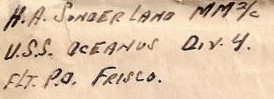 H.A. SUNDERLAND MM 2/c
U.S.S. OCEANUS DIV. 4.
FLT. P.O. FRISCO.